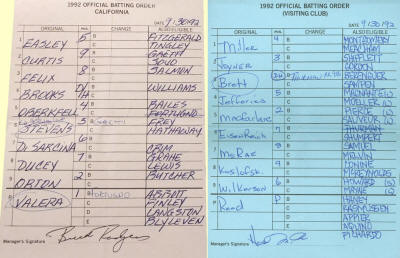 1992 OFFICIAL BATTING ORDER
CALIFORNIA
9/30/92
ORIGINAL POS. CHANGE ALSO ELIGIBLE
1 EASLEY 5 B FITZGERALD
C TINGLEY
2 CURTIS 9 B GAETTI
C
3 FELIX 8 B SALMON
C
4 BROOKS B WILLIAMS
C
5 OBERKFELL 4 B BAILES
C
6 STEVENS 3 B FREY
C HATHAWAY
7 DISARCINA 6 B
C CRIM
8 DUCEY 7 B GRAHE
C LEWIS
9 ORTON 2 B BUTCHER
C
P VALERA 1 B ABBOTT
C FINLEY
D LANGSTON
E BLYLEVEN
Manager's Signature Buck Rodgers
1992 OFFICIAL BATTING ORDER
(VISITING CLUB)
9/30/92
ORIGINAL POS. CHANGE ALSO ELIGIBLE
1 Miller 4 B MONTGOMERY
C MEACHAM
2 Joyner 3 B SHIFFLETT
C GORDON
3 Brett DH B BERENGUER
C SAMPEN
4 Jefferies 5 B
C MOELLER
5 Macfarlane 2 B PIERCE
C SAUVEUR
6 Eisenreich B THURMAN
C
7 McRae 8 B SAMUEL
C MELVIN
8 Koslofski B
C McREYNOLDS
9 Wilkerson 6 B HOWARD
C MAYNE
P Reed P B HANEY
C RASMUSSEN
D APPIER
E AQUINO
PICHARDO
Manager's Signature